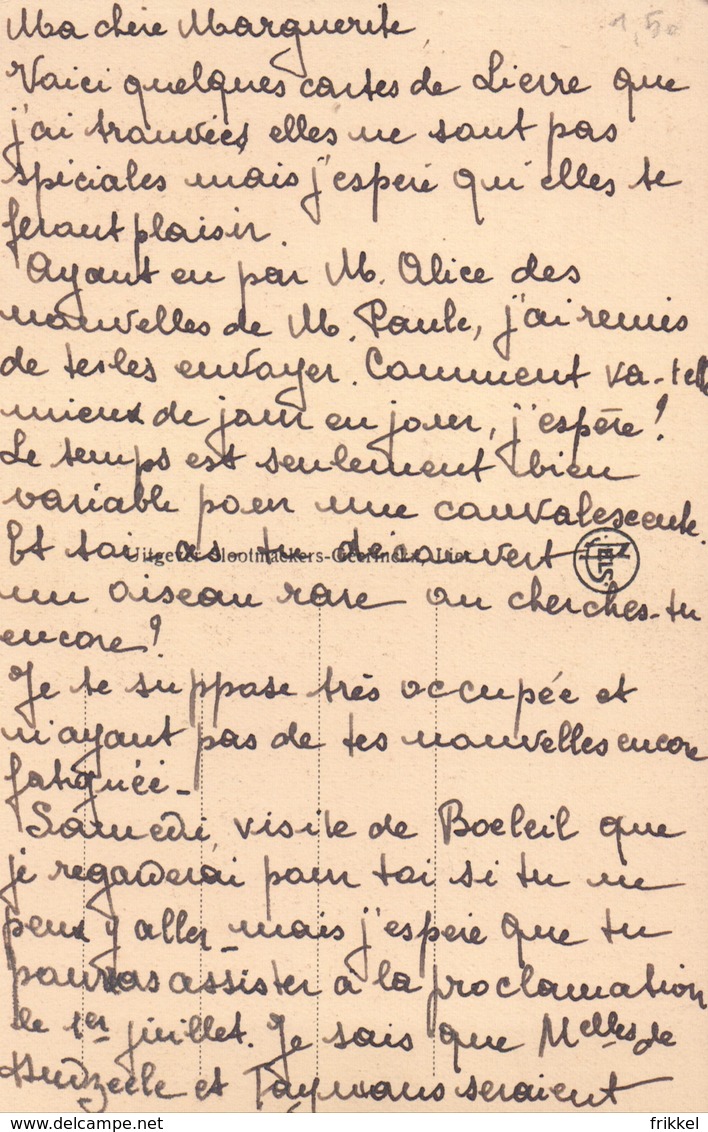 Ma chère Marguerite,
1,50
Voici quelques cartes de Lierre que
j'ai trouvées, elles ne sont pas
spéciales mais j'espère qu'elles te
feront plaisir.
Ayant eu par M. Alice des
nouvelles de M. Paule, j'ai remis
de te les envoyer. Comment va-t-elle
mieux de jour en jour, j'espère!
Le temps est seulement bien
variable pour une convalescente.
Et toi as tu découvert
Uitgever Slootmaekers- Lier
ELS
un oiseau rare ou cherches-tu
encore?
Je te suppose très occupée et
n'ayant pas de tes nouvelles encore
fatiguée -
Samedi, visite de Boeleil que
je regarderai pour toi si tu ne
peux y aller - mais j'espère que tu
pourras assister à la proclamation
le 1er juillet. Je sais que Melles de
et seraient
frikkel